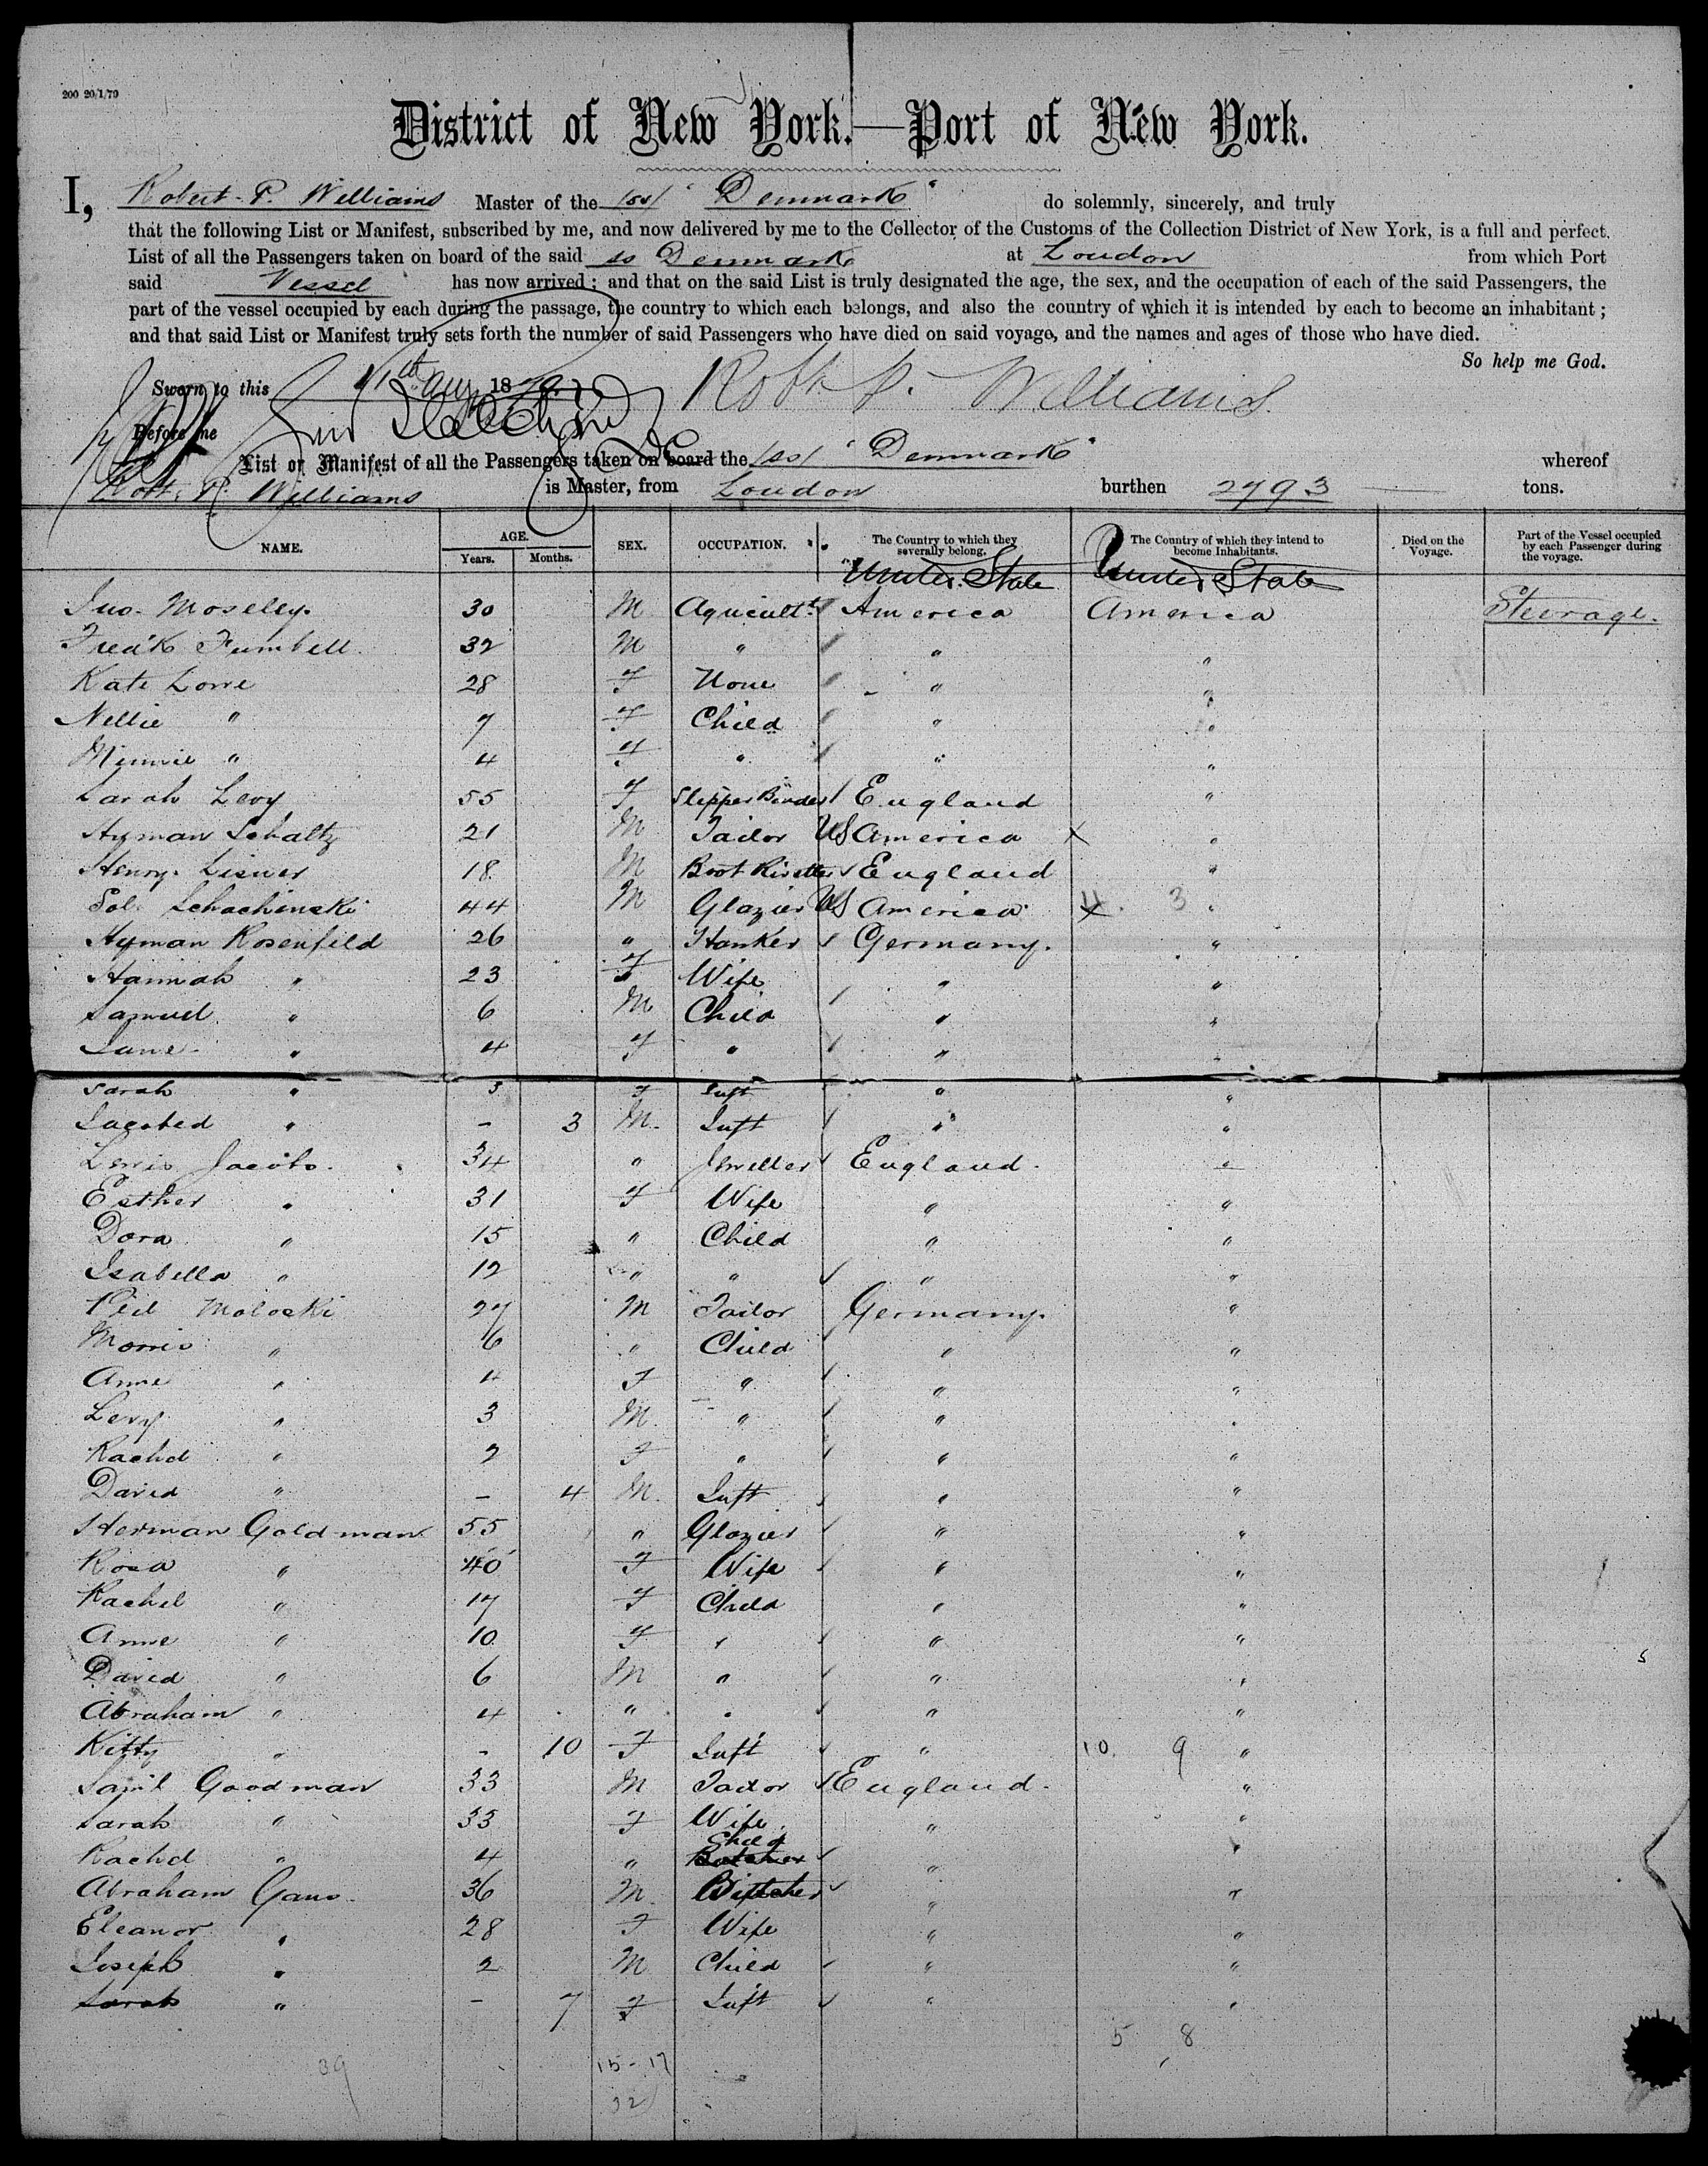 200 20/1/79
District of New York.—Port of New York.
I, Robert P. Williams Master of the ss "Denmark" do solemnly, sincerely, and truly
that the following List or Manifest, subscribed by me, and now delivered by me to the Collector of the Customs of the Collection District of New York, is a full and perfect
List of all the Passengers taken on board of the said ss Denmark at London from which Port
said Vessel has now arrived; and that on the said List is truly designated the age, the sex, and the occupation of each of the said Passengers, the
part of the vessel occupied by each during the passage, the country to which each belongs, and also the country of which it is intended by each to become an inhabitant;
and that said List or Manifest truly sets forth the number of said Passengers who have died on said voyage, and the names and ages of those who have died.
So help me God.
Sworn to this 11th Aug 1879 Robt. P. Williams
Before me
List or Manifest of all the Passengers taken on board the ss "Denmark" whereof
Robt. P. Williams is Master, from London burthen 2793 tons.
NAME. AGE. Years. Months. SEX. OCCUPATION. The Country to which they severally belong. The Country of which they intend to become Inhabitants. Died on the Voyage. Part of the Vessel occupied by each Passenger during the voyage.
United State United State
Jno. Moseley. 30 M Agricult. America America Steerage.
Fredk Fumbell. 32 M " " "
Kate Lowe 28 F None " "
Nellie " 7 F Child " "
Minnie " 4 F " " "
Sarah Levy 55 F Slipper Binder England "
Hyman Schaltz 21 M Tailor US America X "
Henry Lisner 18 M Boot Rivetter England "
Sol. Schachinski 44 M Glazier US America X 4. 3 "
Hyman Rosenfeld 26 " Hawker Germany. "
Hannah " 23 F Wife " "
Samuel " 6 M Child " "
Jane " 4 F " " "
Sarah " 3 F Inft " "
Jacobed " - 3 M. Inft " "
Lewis Jacobs. 34 " Jeweller England. "
Esther " 31 F Wife " "
Dora " 15 " Child " "
Isabella " 12 " " " "
Moloski 27 M Tailor Germany. "
Morris " 6 " Child " "
Anne " 4 F " " "
Levy " 3 M. " " "
Rachel " 2 F " " "
David " - 4 M. Inft " "
Herman Goldman 55 " Glazier " "
Rosa " 40 F Wife " "
Rachel " 17 F Child " "
Anne " 10 F " " "
David " 6 M " " "
Abraham " 4 " " " "
Kitty " - 10 F Inft " 10. 9 "
Saml Goodman 33 M Tailor England. "
Sarah " 33 F Wife " "
Rachel " 4 " Butcher Child " "
Abraham Gans. 36 M. Butcher " "
Eleanor " 28 F Wife " "
Joseph " 2 M Child " "
Sarah " - 7 F Inft " "
5 8
39 15-17
32